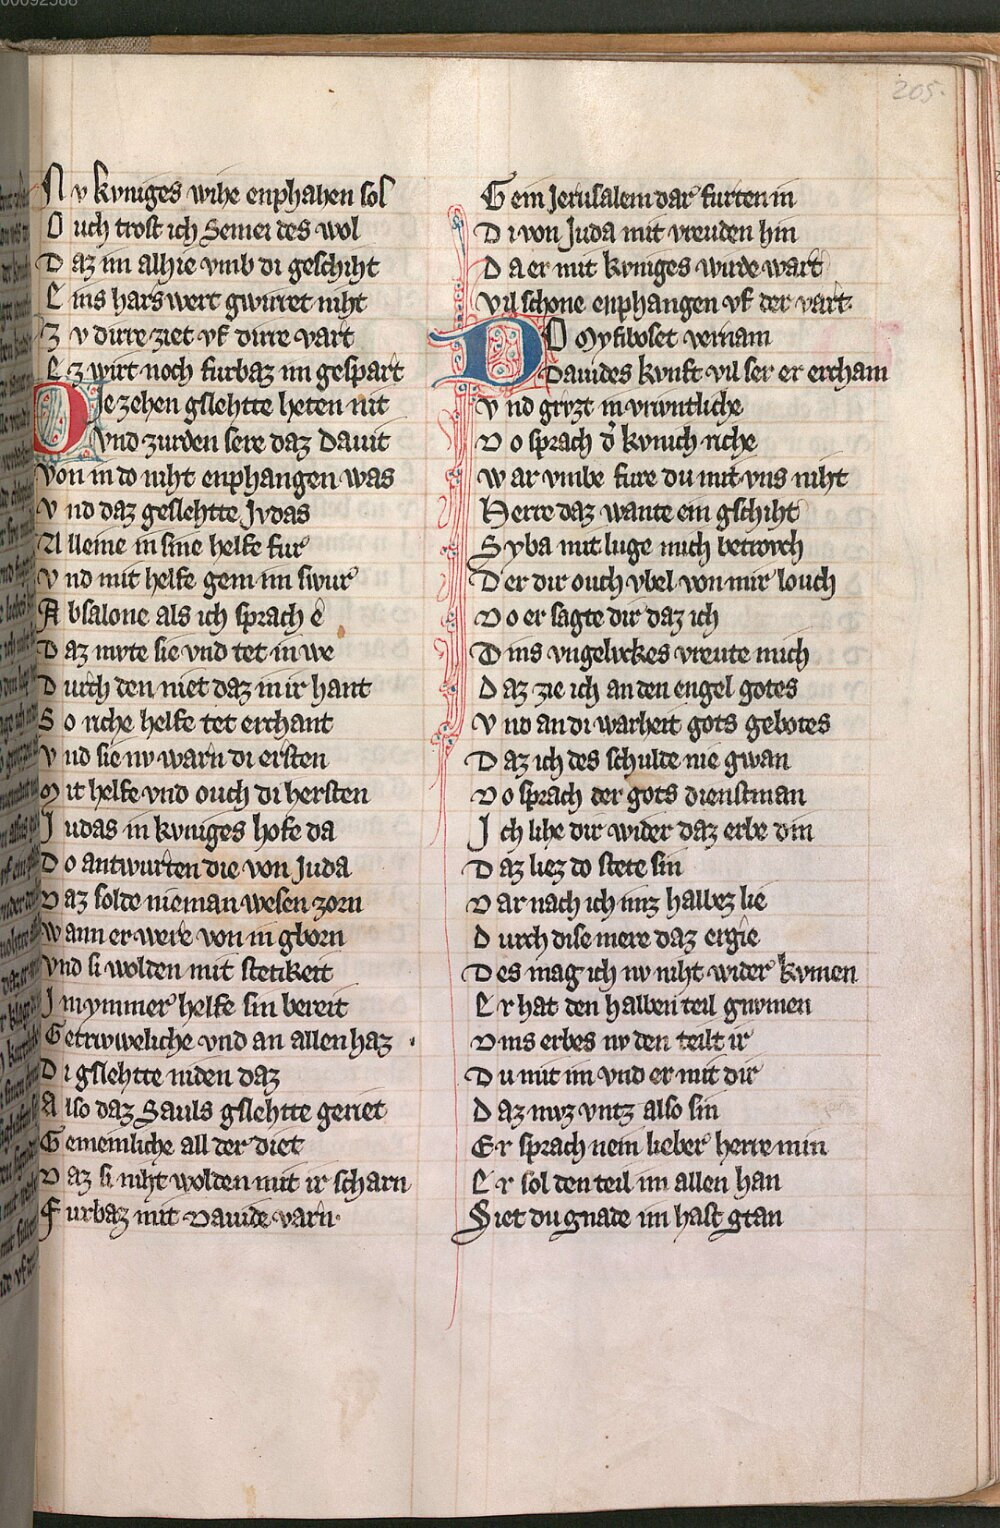 205.
Nv kvniges wihe enphahen sol
Ouch trost ich Semei des wol
Daz im alhie vmb di geschiht
Eins hars wert gwirret niht
Zv dirre ziet vf dirre vart
Ez wirt noch furbaz im gespart
Die zehen gslehtte heten nit
Vnd zurden sere daz Dauit
Von in do niht enphangen was
Vnd daz geslehtte Jvdas
Alleine in sine helfe fur
Vnd mit helfe gein im swur
Absalone als ich sprach e
Daz mvte sie vnd tet in we
Durch den niet daz in ir hant
So riche helfe tet erchant
Vnd sie nv warn di ersten
Mit helfe vnd ouch di hersten
Judas in kvniges hofe da
Do antwurten die von Juda
Daz solde nieman wesen zorn
Wann er were von in gborn
Vnd si wolden mit stetikeit
Im ymmer helfe sin bereit
Getrwweliche vnd an allen haz
Di gslehtte niden daz
Also daz Sauls gslehtte geriet
Gemeinliche all der diet
Daz si niht wolden mit ir scharn
Furbaz mit Dauide varn
Gein Jerusalem dar furten in
Di von Juda mit vreuden hin
Da er mit kvniges wirde wart
Vil schone enphangen vf der vart
DO Myfiboset vernam
Dauides kvnft vil ser er ercham
Vnd grvzt in vrivntliche
Do sprach d̓ kvnich riche
War vmbe fure du mit vns niht
Herre daz wante ein gschiht
Syba mit luge mich betrovch
Der dir ouch vbel von mir louch
Do er sagte dir daz ich
Dins vngelvckes vreute mich
Daz zie ich an den engel gotes
Vnd an di warheit gots gebotes
Daz ich des schulde nie gwan
Do sprach der gots dienstman
Ich lihe dir wider daz erbe din
Daz liez do stete sin
Dar nach ich imz halbez lie
Durch dise mere daz ergie
Des mag ich nv niht wider kvmen
Er hat den halben teil gnvmen
Dins erbes nv den teilt ir
Du mit im vnd er mit dir
Daz mvz vntz also sin
Er sprach nein lieber herre min
Er sol den teil im allen han
Siet du gnade im hast gtan